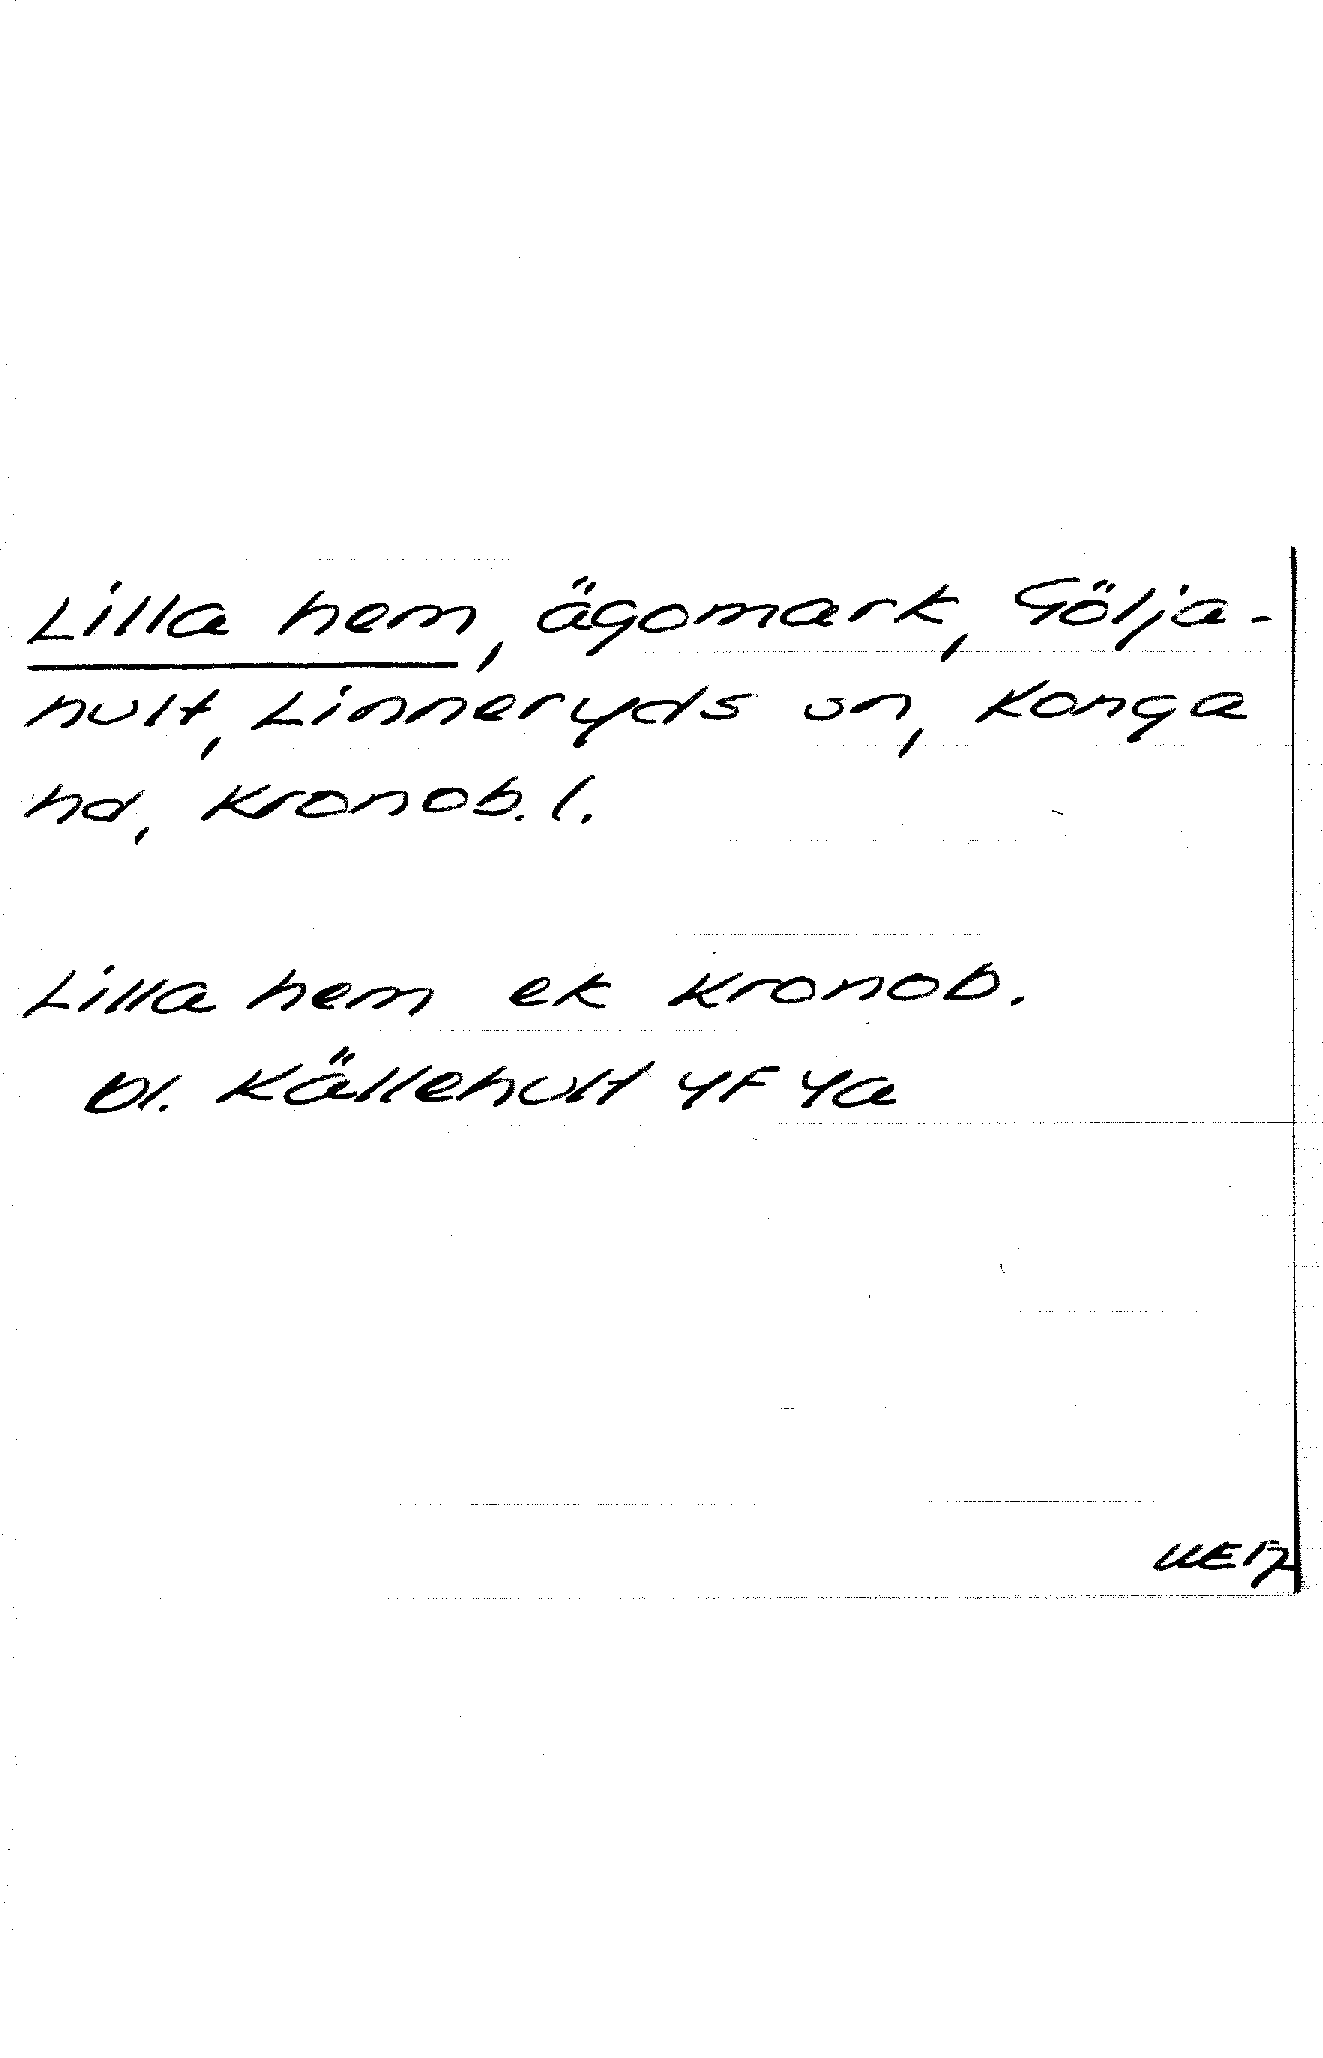 Lilla hem, ägomark, Gölja-
hult, Linneryds sn, Konga
hd, Kronob. l.
Lilla hem ek Kronob.
bl. Källehult 4F 4a